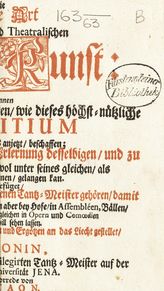 ie Art
163 63 B
nd Theatralischen
Kunst:
Fürstensteiner Bibliothek
nnen
en, wie dieses höchst-nützliche
ITIUM
anjetzt, beschaffen;
Erlernung desselbigen, und zu
wol unter seines gleichen, als
nen, gelangen kan.
efüget,
enen Tantz-Meister gehören, damit
aber bey Hofe in Assembléen, Bällen,
gleichen in Opera und Comœdien
ill sehen lassen.
und Ergötzen an das Liecht gestellet,
ONIN,
ilegirten Tantz-Meister auf der
niversität JENA.
rrede von
AON.